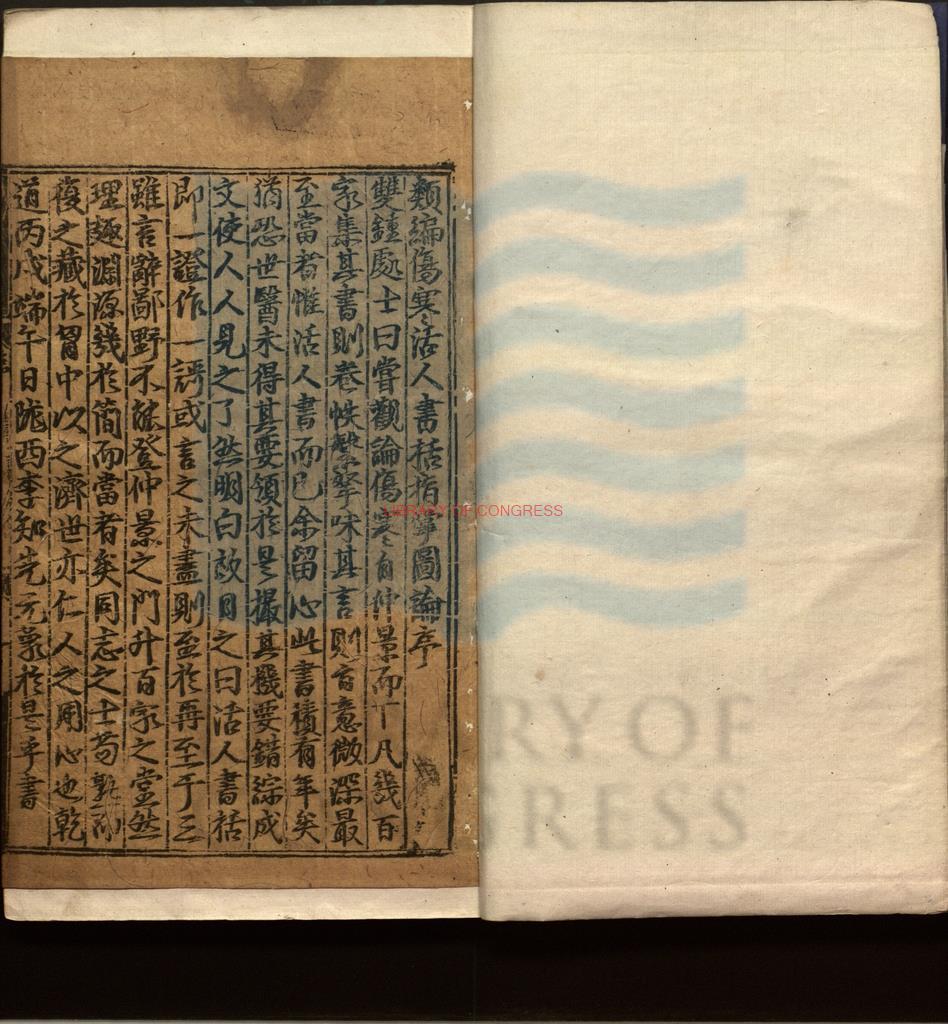 類編傷寒活人書括指掌圖論序
雙鍾處士曰嘗觀論傷寒自仲景而下凡幾百
家集其書則卷帙繁拏味其言則旨意微深最
至當者惟活人書而已余留心此書積有年矣
猶恐世醫未得其要領於是撮其機要錯綜成
文使人人見之了然明白故目之曰活人書括
即一證作一謌或言之未盡則至於再至于三
雖言辭鄙野不能登仲景之門升百家之堂然
理趣淵源幾於簡而當者矣同志之士苟
復之藏於胷中以之濟世亦仁人之用心也乾
道丙戌端午日隴西李知先元象於是乎書
LIBRARY OF CONGRESS
RY OF
GRESS